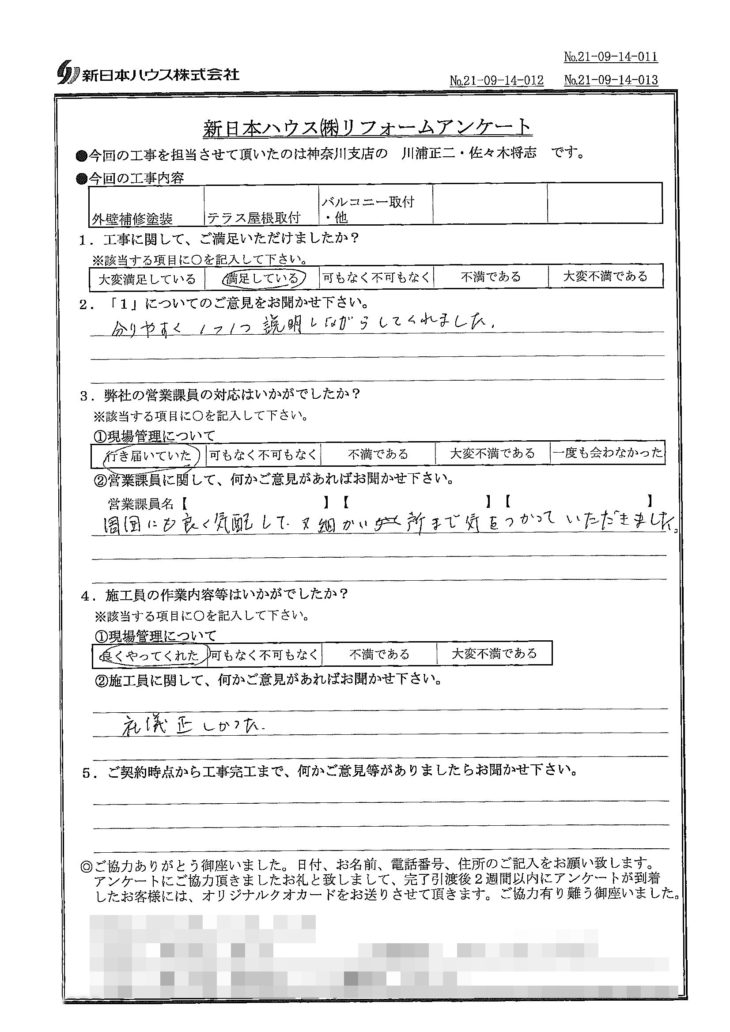 新日本ハウス株式会社
№21-09-14-011
№21-09-14-012 №21-09-14-013
新日本ハウス㈱リフォームアンケート
●今回の工事を担当させて頂いたのは神奈川支店の 川浦正二・佐々木将志 です。
●今回の工事内容
外壁補修塗装 テラス屋根取付 バルコニー取付
・他
1．工事に関して、ご満足いただけましたか？
※該当する項目に○を記入して下さい。
大変満足している 満足している 可もなく不可もなく 不満である 大変不満である
2．「1」についてのご意見をお聞かせ下さい。
分りやすく 1つ1つ 説明しながらしてくれました.
3．弊社の営業課員の対応はいかがでしたか？
※該当する項目に○を記入して下さい。
①現場管理について
行き届いていた 可もなく不可もなく 不満である 大変不満である 一度も会わなかった
②営業課員に関して、何かご意見があればお聞かせ下さい。
営業課員名【 】【 】【 】
周囲にも良く気配して.又細かい所まで気をつかっていただきました。
4．施工員の作業内容等はいかがでしたか？
※該当する項目に○を記入して下さい。
①現場管理について
良くやってくれた 可もなく不可もなく 不満である 大変不満である
②施工員に関して、何かご意見があればお聞かせ下さい。
礼儀正しかった.
5．ご契約時点から工事完工まで、何かご意見等がありましたらお聞かせ下さい。
◎ご協力ありがとう御座いました。日付、お名前、電話番号、住所のご記入をお願い致します。
アンケートにご協力頂きましたお礼と致しまして、完了引渡後2週間以内にアンケートが到着
したお客様には、オリジナルクオカードをお送りさせて頂きます。ご協力有り難う御座いました。